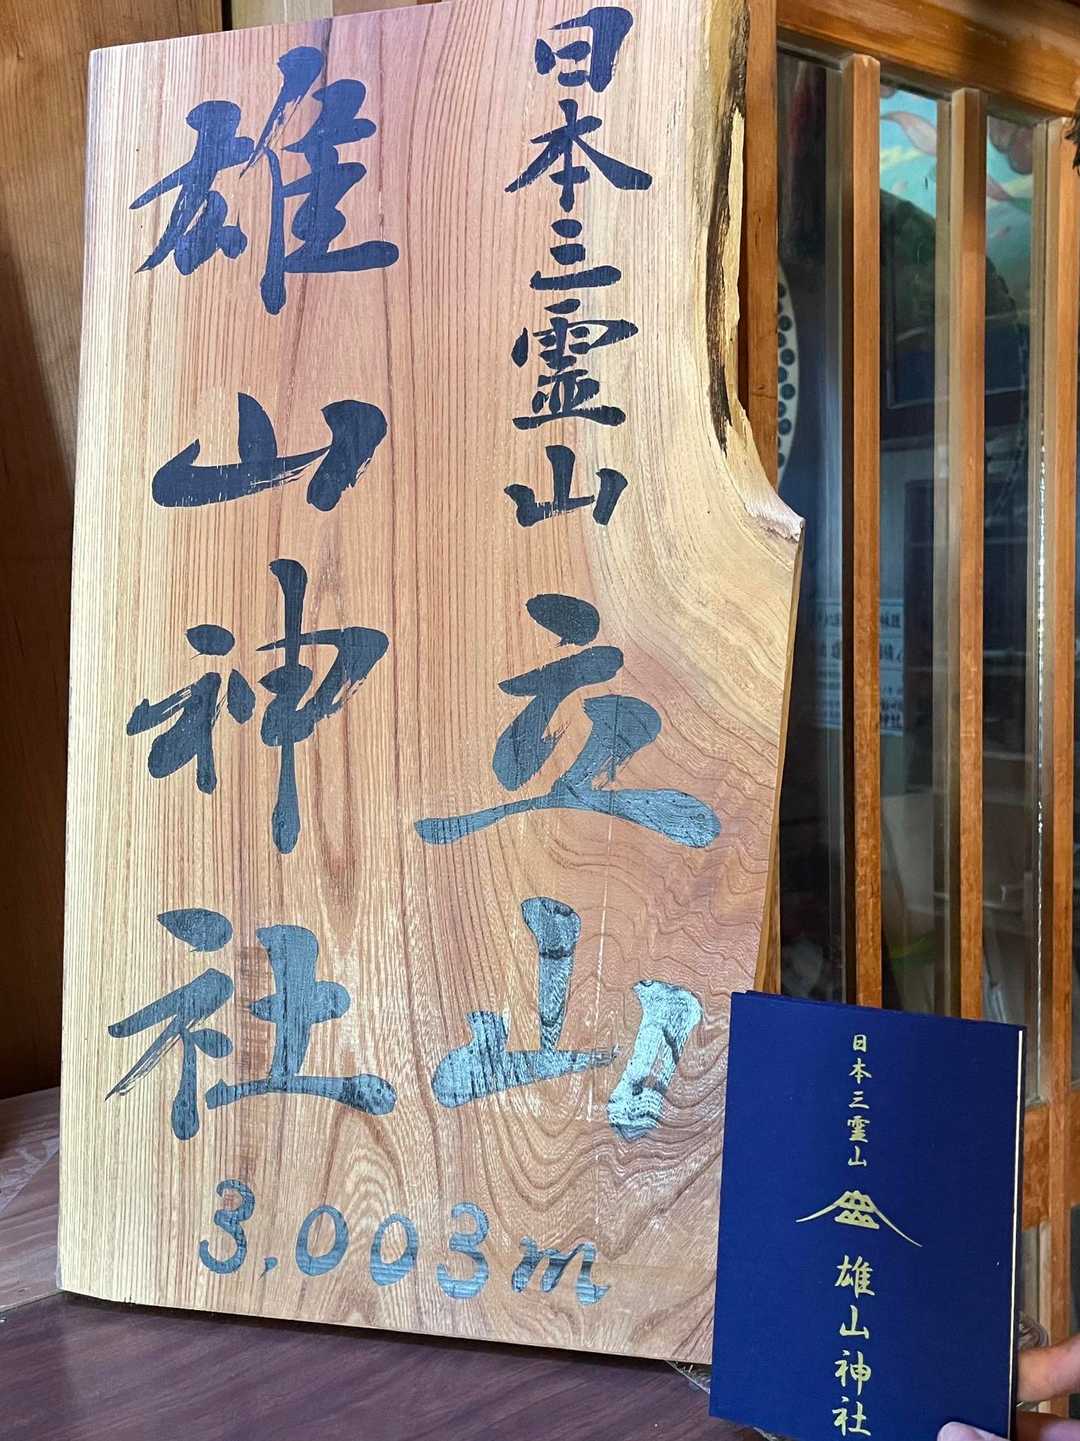 日本三霊山
立山
雄山神社
3,003m
日本三霊山
雄山神社